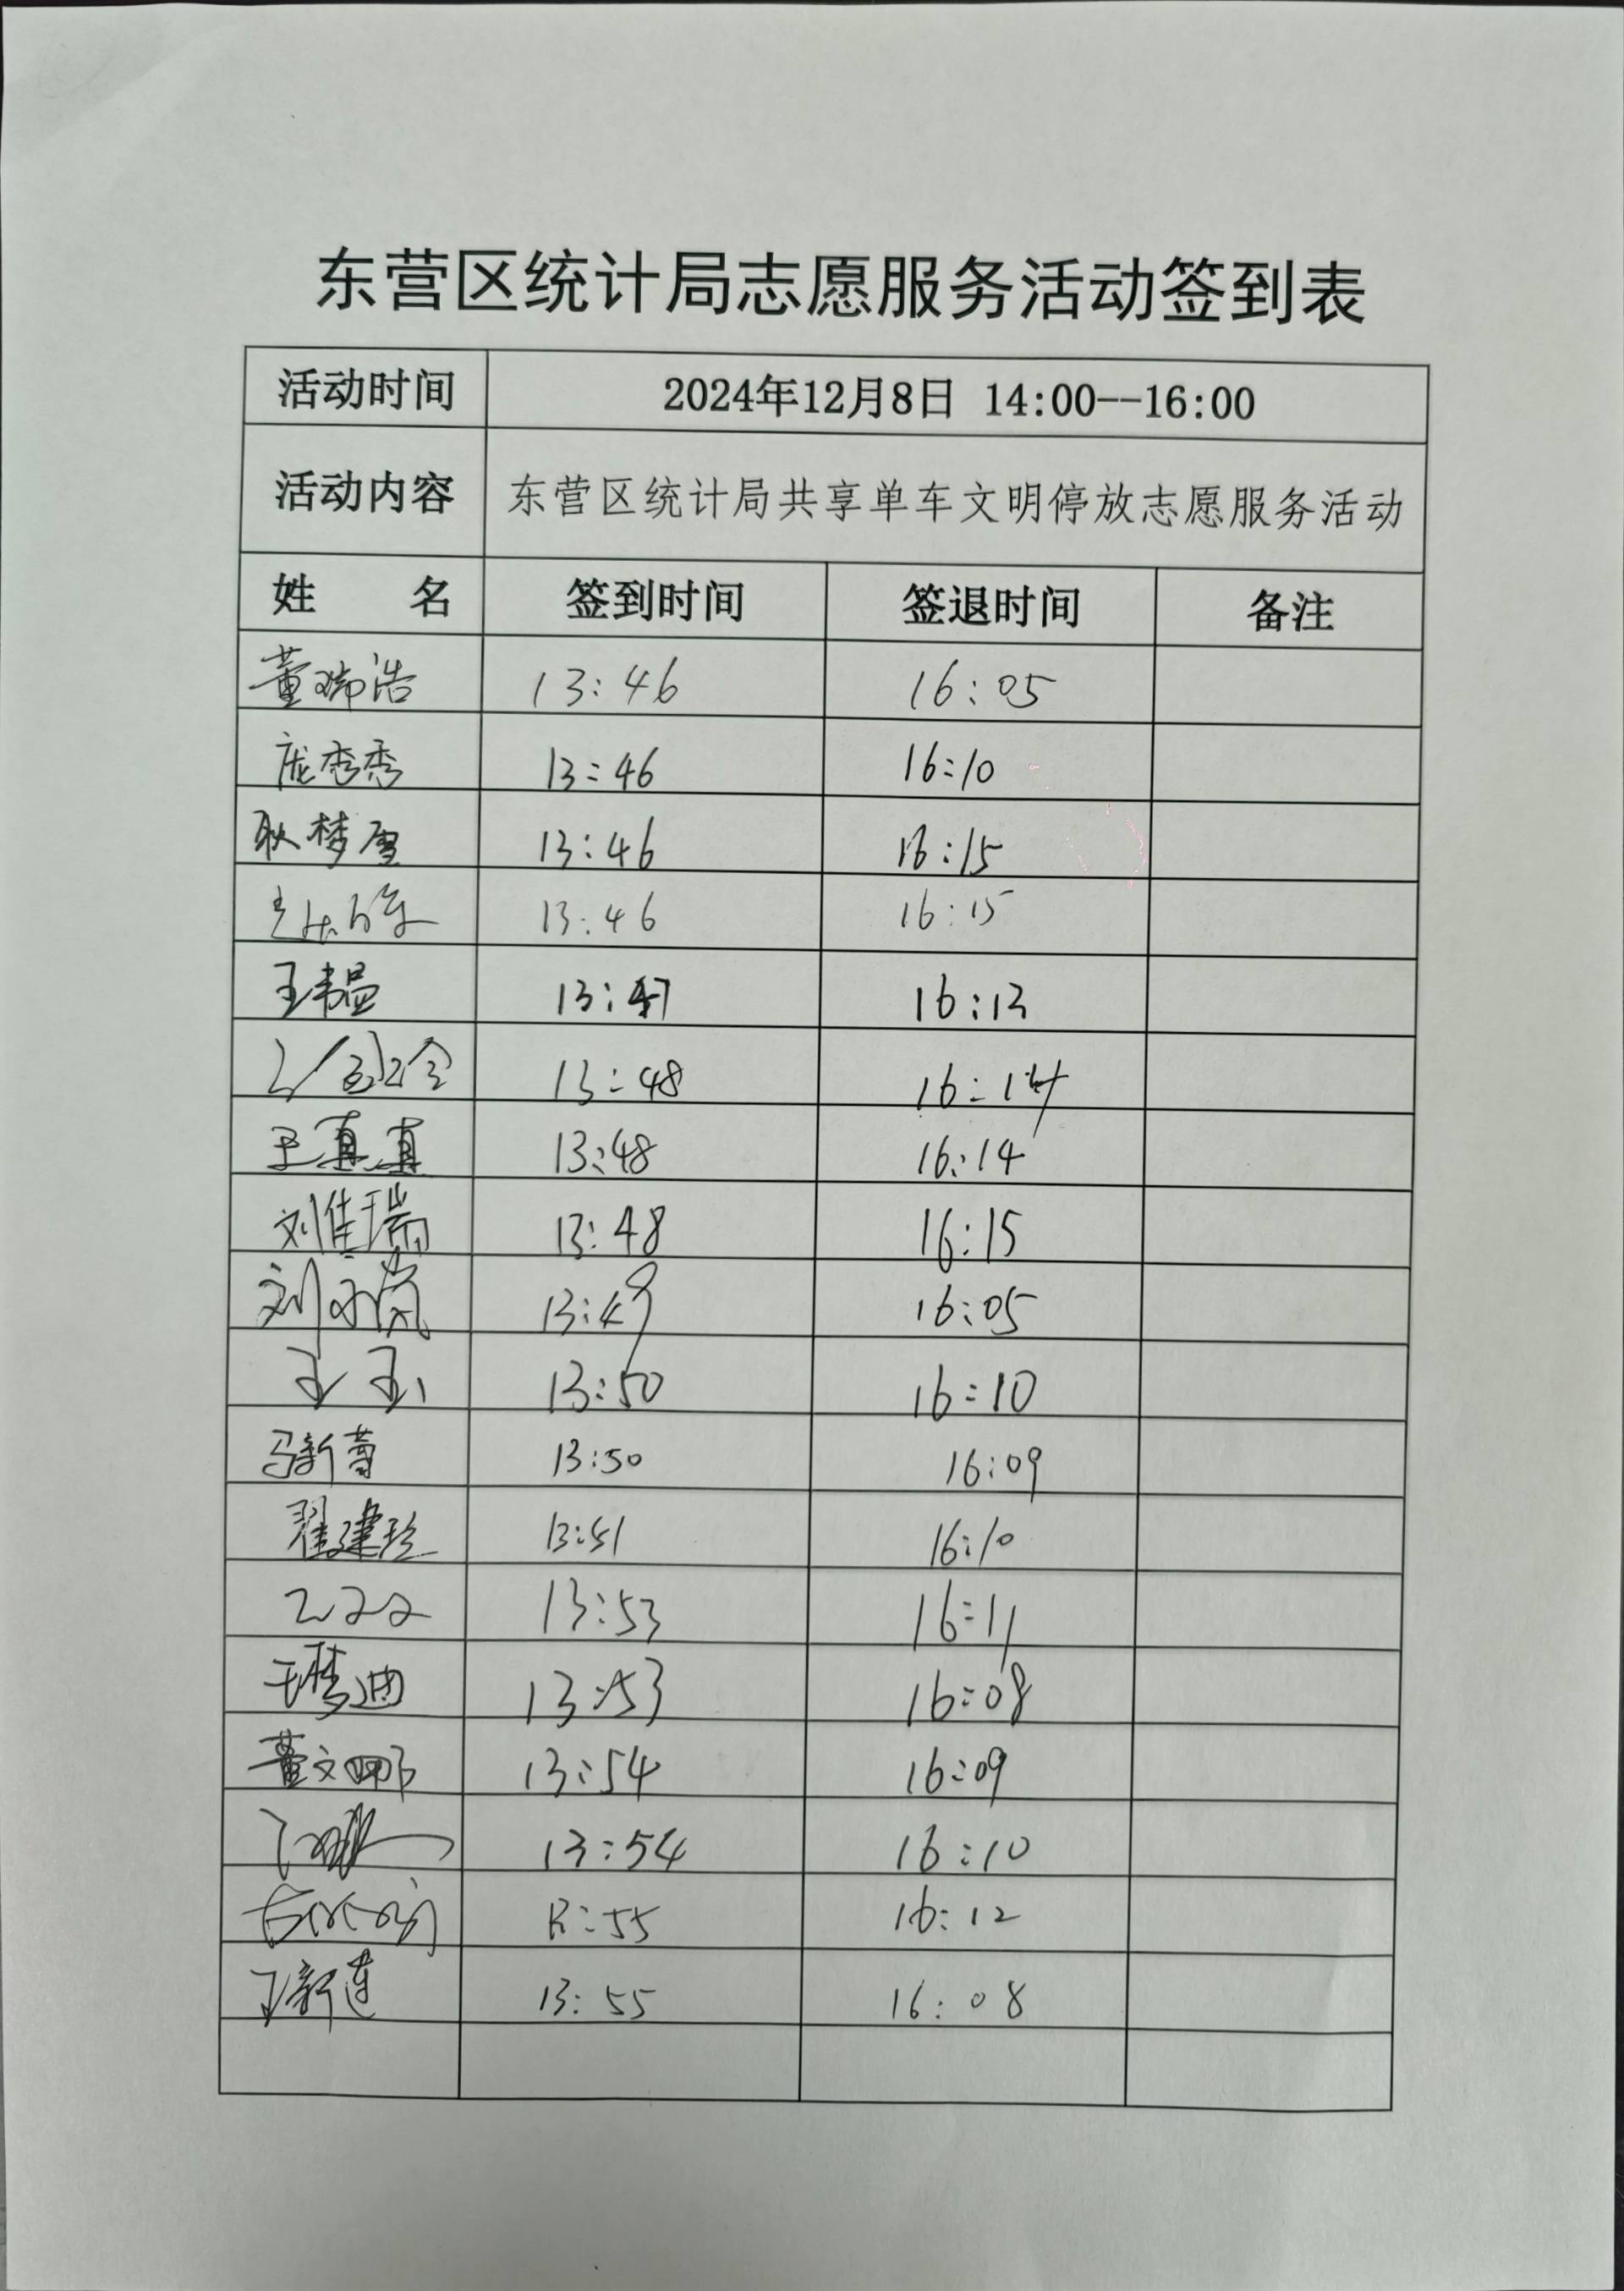 东营区统计局志愿服务活动签到表
活动时间 2024年12月8日 14:00--16:00
活动内容 东营区统计局共享单车文明停放志愿服务活动
姓 名 签到时间 签退时间 备注
董瑞浩 13:46 16:05
庞秀秀 13:46 16:10
耿梦雪 13:46 16:15
13:46 16:15
王韦昷 13:47 16:13
13:48 16:14
王真真 13:48 16:14
刘佳瑞 13:48 16:15
刘小岚 13:49 16:05
王玉 13:50 16:10
马新蕾 13:50 16:09
翟建珍 13:51 16:10
13:53 16:11
王梦迪 13:53 16:08
董文娜 13:54 16:09
13:54 16:10
13:55 16:12
王新莲 13:55 16:08